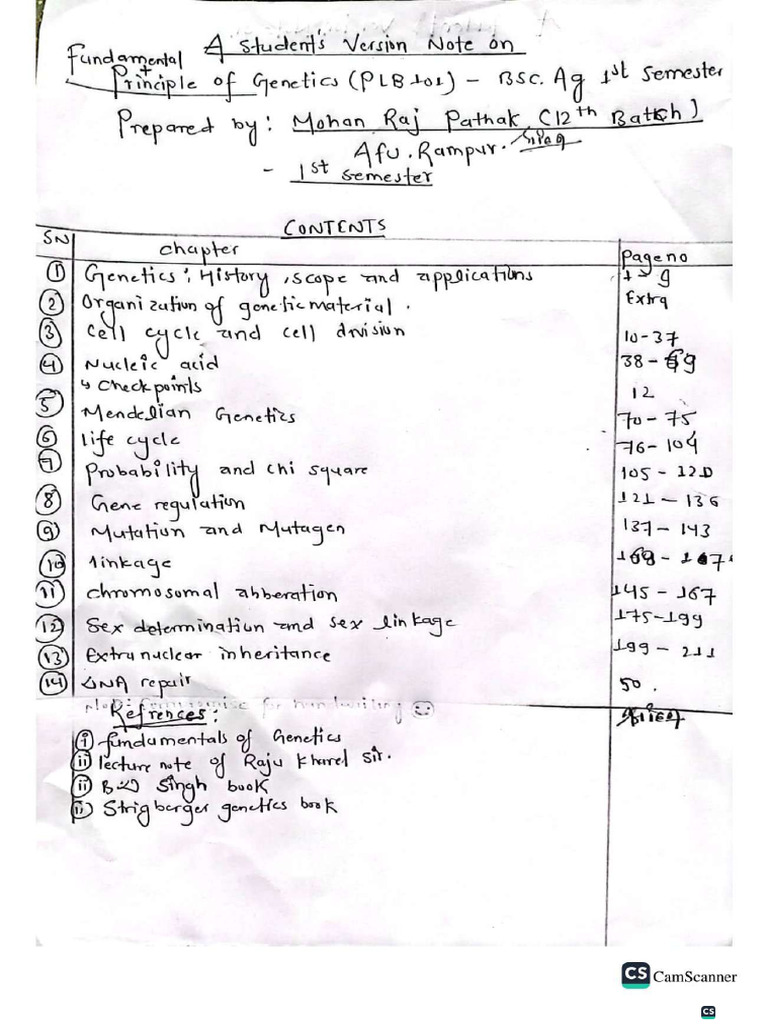 A Student's Version Note on
Fundamental + Principle of Genetics (PLB 101) - BSC. Ag 1st Semester
Prepared by: Mohan Raj Pathak (12th Batch)
Afu. Rampur.
- 1st semester
CONTENTS
SN chapter Page no
1 Genetics: History, scope and applications 1 - 9
2 Organization of genetic material. Extra
3 Cell cycle and cell division 10-37
4 Nucleic acid 38 - 69
↳ Checkpoints 12
5 Mendelian Genetics 70 - 75
6 life cycle 76 - 104
7 Probability and chi square 105 - 120
8 Gene regulation 121 - 136
9 Mutation and Mutagen 137 - 143
10 linkage
11 chromosomal abberation 145 - 167
12 Sex determination and sex linkage 175-199
13 Extra nuclear inheritance 199 - 211
14 DNA repair 50.
for handwriting ☺
Refrences:
i fundamentals of Genetics
ii lecture note of Raju Kharel Sir.
ii BD Singh book
Strigberger genetics book
CS CamScanner
CS